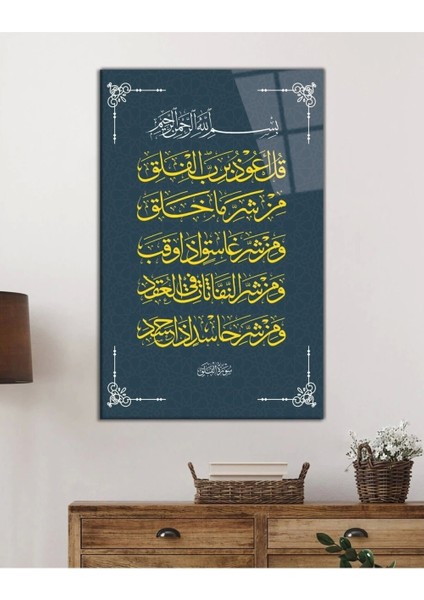 بِسْمِ اللهِ الرَّحْمٰنِ الرَّحِيْمِ
قل اعوذ برب الفلق
من شر ما خلق
ومن شر غاسق اذا وقب
ومن شر النفاثات في العقد
ومن شر حاسد اذا حسد
سورة الفلق